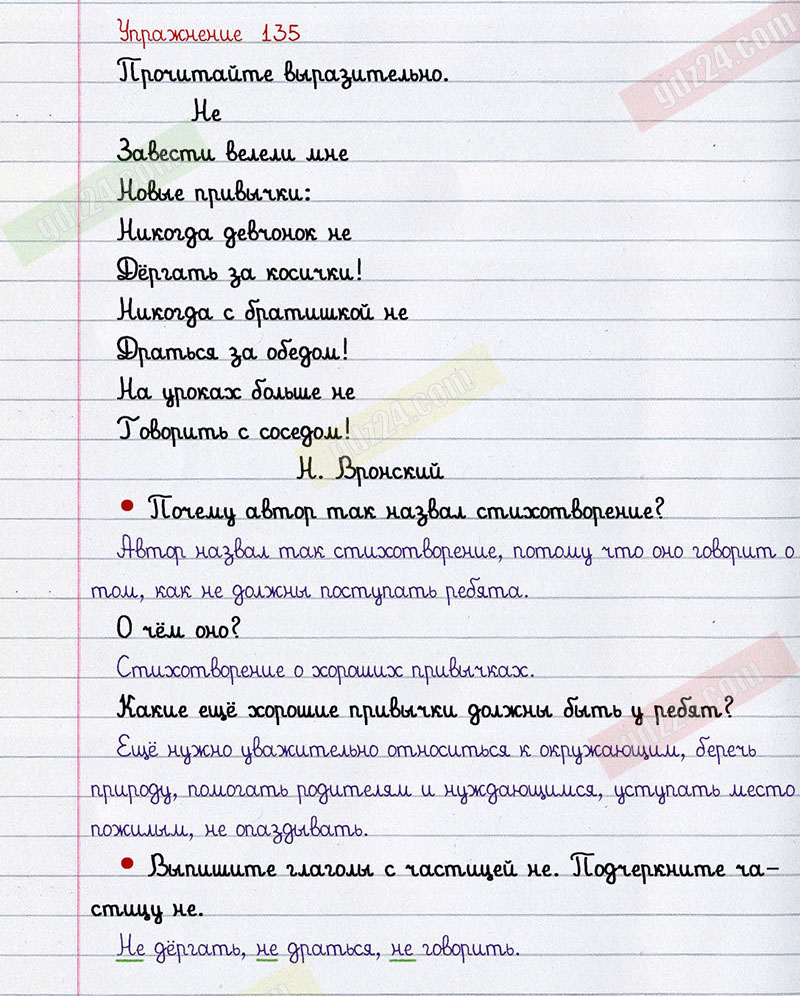 Упражнение 135
Прочитайте выразительно.
Не
Завести велели мне
Новые привычки:
Никогда девчонок не
Дёргать за косички!
Никогда с братишкой не
Драться за обедом!
На уроках больше не
Говорить с соседом!
Н. Вронский
• Почему автор так назвал стихотворение?
Автор назвал так стихотворение, потому что оно говорит о
том, как не должны поступать ребята.
О чём оно?
Стихотворение о хороших привычках.
Какие ещё хорошие привычки должны быть у ребят?
Ещё нужно уважительно относиться к окружающим, беречь
природу, помогать родителям и нуждающимся, уступать место
пожилым, не опаздывать.
• Выпишите глаголы с частицей не. Подчеркните ча-
стицу не.
Не дёргать, не драться, не говорить.
gdz24.com
gdz24.com
gdz24.com
gdz24.com
gdz24.com